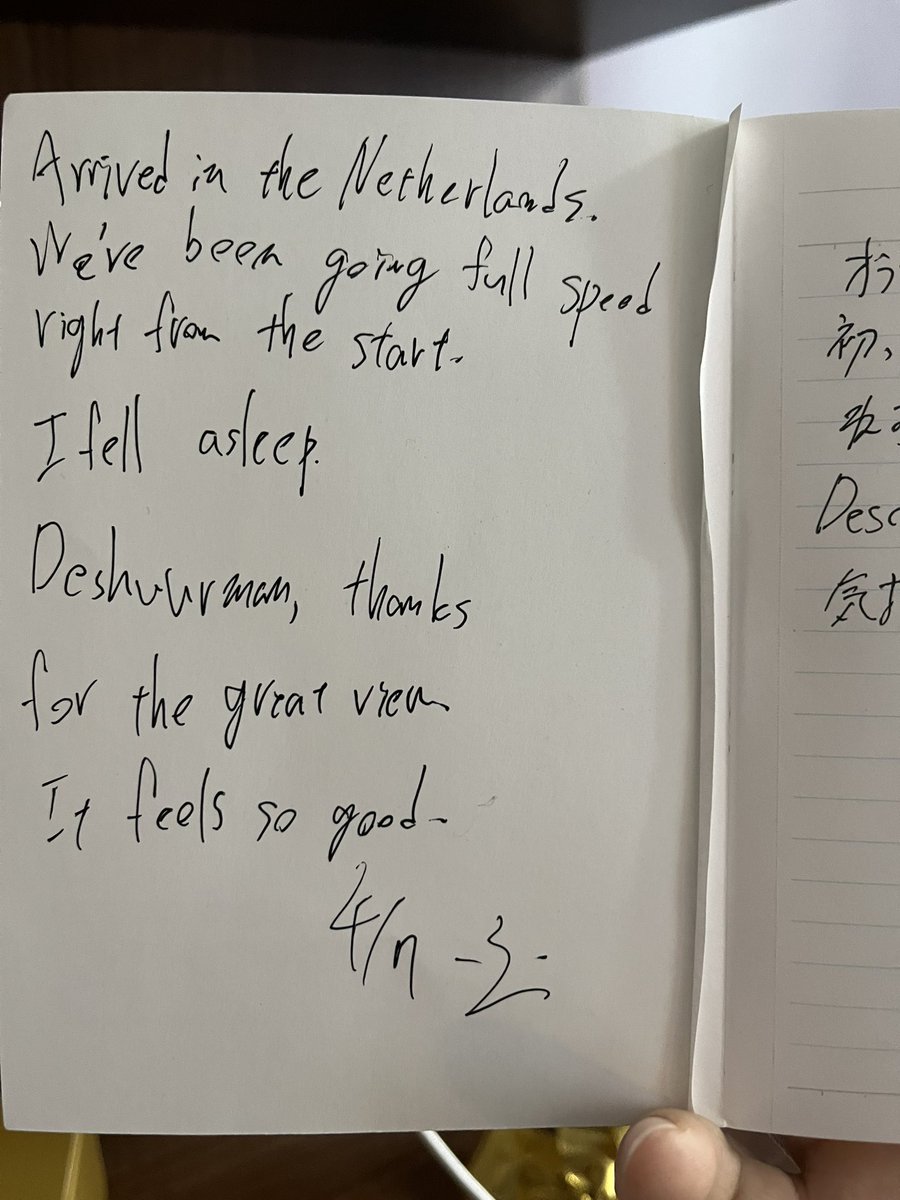 Arrived in the Netherlands.
We've been going full speed
right from the start.
I fell asleep.
Deshuurman, thanks
for the great view
It feels so good.
オラ
初、
Desc
気持